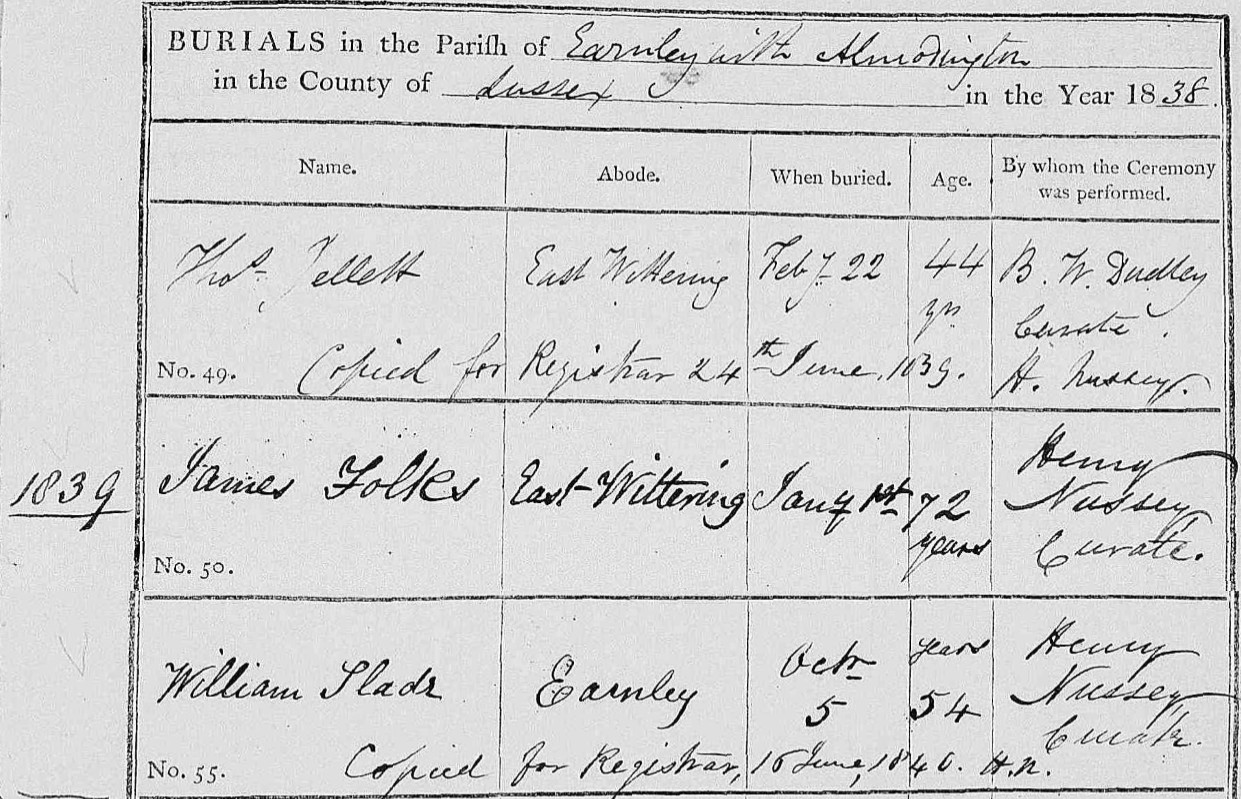 BURIALS in the Parish of Earnley with Almodington
in the County of Sussex in the Year 1838.
Name. Abode. When buried. Age. By whom the Ceremony was performed.
Thos. Jellett East Wittering Feby. 22 44 yrs B. W. Dudley Curate.
No. 49. Copied for Registrar 24th June, 1839. H. Nussey.
1839 James Folks East-Wittering Jany 1st 72 years Henry Nussey Curate.
No. 50.
William Slade Earnley Octr 5 years 54 Henry Nussey Curate.
No. 55. Copied for Registrar, 16 June, 1840. H.N.